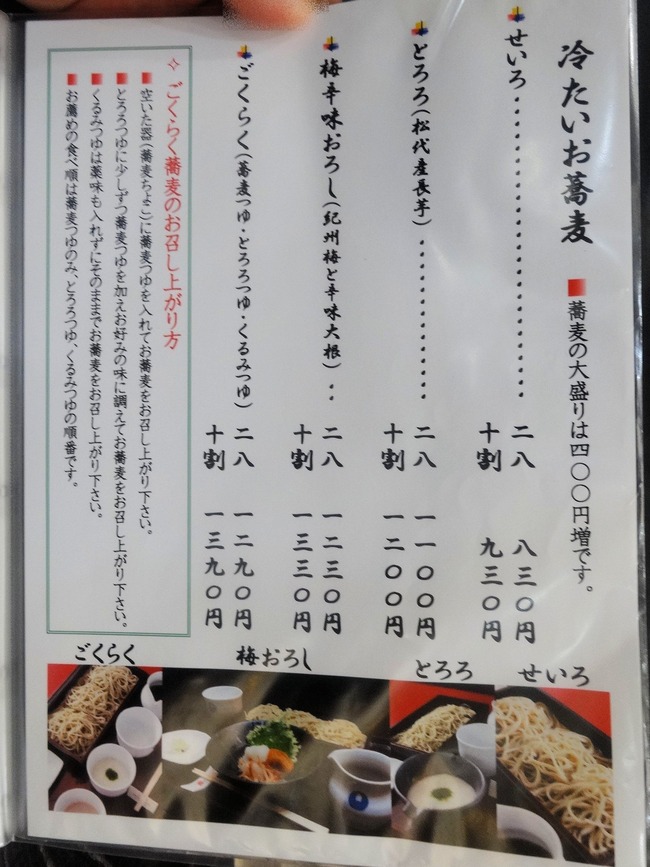 冷たいお蕎麦
■蕎麦の大盛りは四〇〇円増です。
せいろ・・・・・・・・・・・・・・・・・・・・・・
二八 八三〇円
十割 九三〇円
とろろ(松代産長芋)・・・・・・・・・・・・
二八 一一〇〇円
十割 一二〇〇円
梅辛味おろし(紀州梅と辛味大根)・・
二八 一二三〇円
十割 一三三〇円
ごくらく(蕎麦つゆ・とろろつゆ・くるみつゆ)
二八 一二九〇円
十割 一三九〇円
✧ごくらく蕎麦のお召し上がり方
■空いた器(蕎麦ちょこ)に蕎麦つゆを入れてお蕎麦をお召し上がり下さい。
■とろろつゆに少しずつ蕎麦つゆを加えお好みの味に調えてお蕎麦をお召し上がり下さい。
■くるみつゆは薬味も入れずにそのままでお蕎麦をお召し上がり下さい。
■お薦めの食べ順は蕎麦つゆのみ、とろろつゆ、くるみつゆの順番です。
せいろ
とろろ
梅おろし
ごくらく